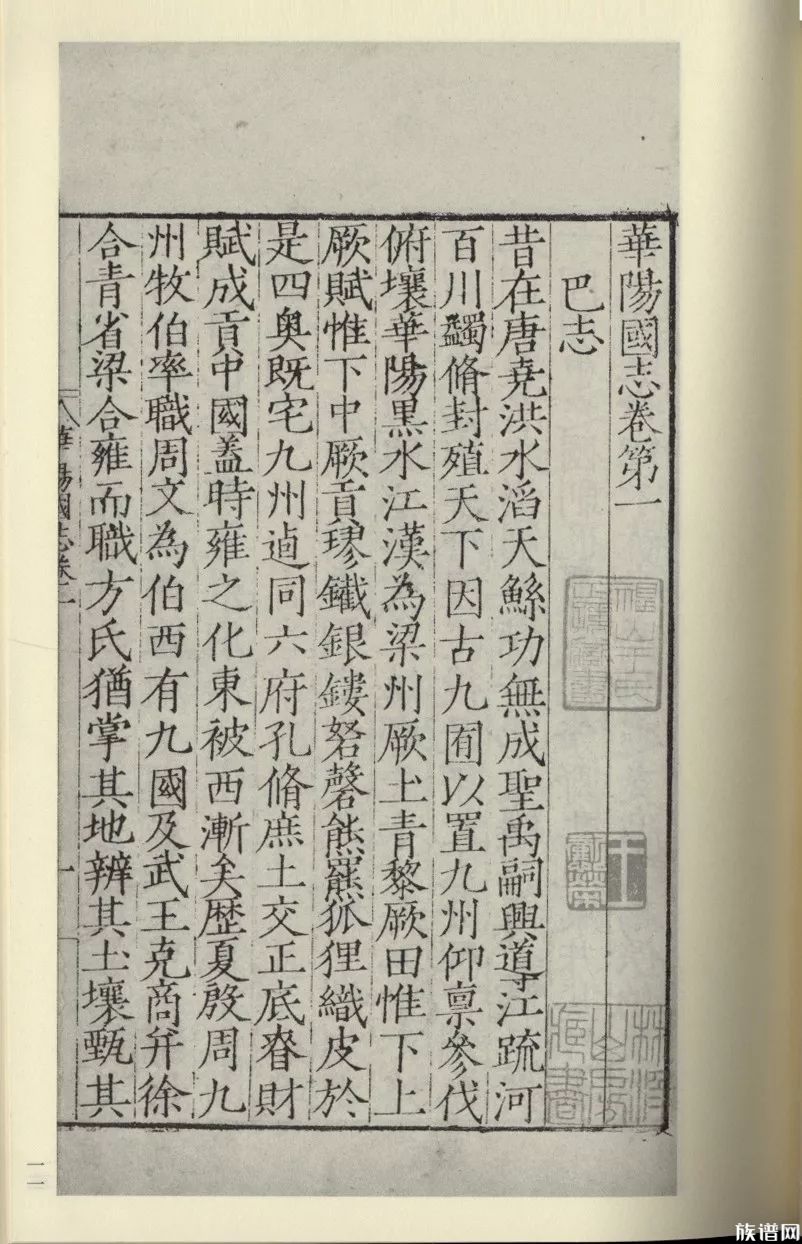 華陽國志卷第一
巴志
昔在唐堯洪水滔天鯀功無成聖禹嗣興導江疏河
百川蠲脩封殖天下因古九囿以置九州仰禀參伐
俯壤華陽黑水江漢為梁州厥土青黎厥田惟下上
厥賦惟下中厥貢璆鐵銀鏤砮磬熊羆狐狸織皮於
是四奥既宅九州逌同六府孔脩庶土交正底眘財
賦成貢中國蓋時雍之化東被西漸矣歷夏殷周九
州牧伯率職周文為伯西有九國及武王克商并徐
合青省梁合雍而職方氏猶掌其地辨其土壤甄其
華陽國志卷一
一
一一
族谱网